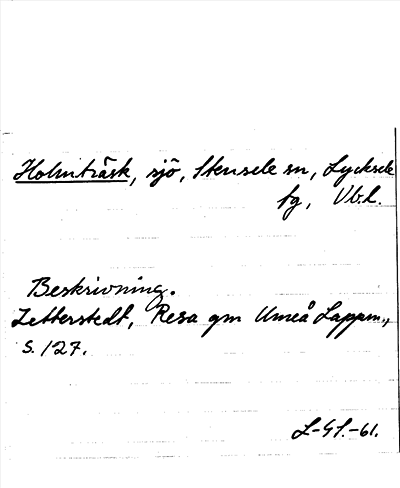 Holmträsk, sjö, Stensele sn, Lycksele
tg, Vb.l.
Beskrivning.
Zetterstedt, Resa gm Umeå Lappm.,
s. 127.
L-Gl.-61.